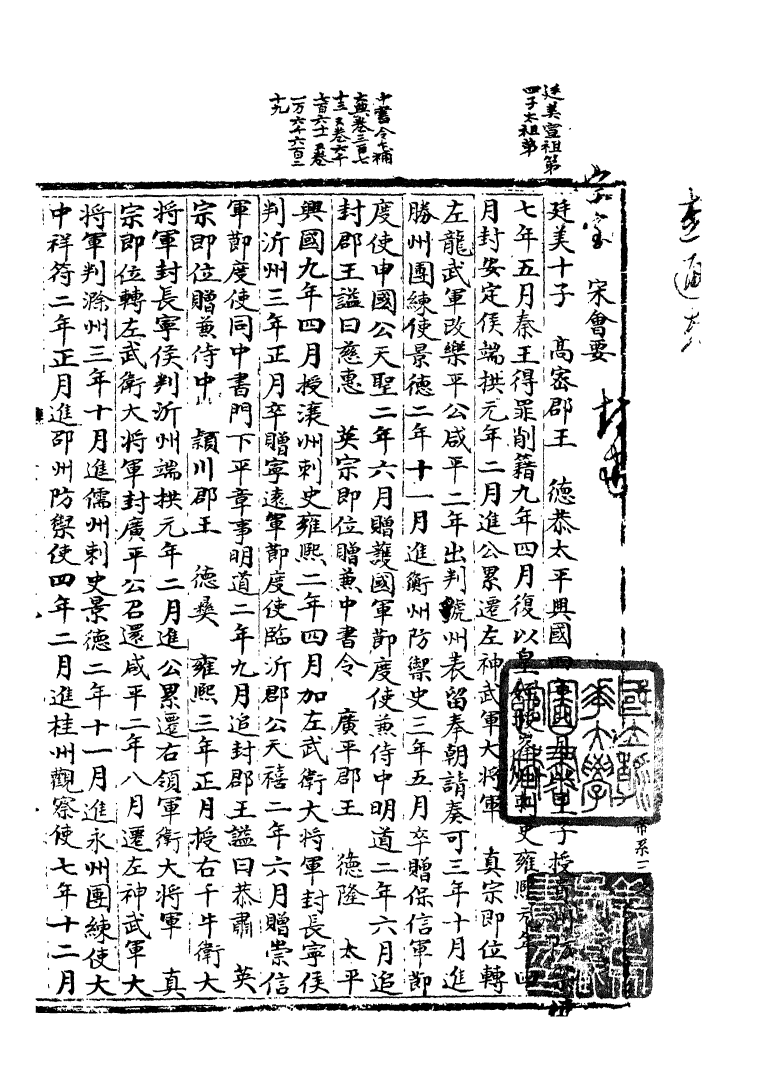 廷美宣祖第
四子太祖弟
中書令七補
十三
一万六千六百二
十九
宗室 宋會要
廷美十子 高密郡王 德恭太平興國四年 授
七年五月秦王得罪削籍九年四月復以皇 刺史雍熙元年
月封安定侯端拱元年二月進公累遷左神武軍大將軍 真宗即位轉
左龍武軍改樂平公咸平二年出判虢州表留奉朝請奏可三年十月進
勝州團練使景德二年十一月進衡州防禦史三年五月卒贈保信軍節
度使申國公天聖二年六月贈護國軍節度使兼侍中明道二年六月追
封郡王謚曰慈惠 英宗即位贈兼中書令 廣平郡王 德隆 太平
興國九年四月授瀼州刺史雍熙二年四月加左武衛大將軍封長寧侯
判沂州三年正月卒贈寧遠軍節度使臨沂郡公天禧二年六月贈崇信
軍節度使同中書門下平章事明道二年九月追封郡王謚曰恭肅 英
宗即位贈兼侍中 潁川郡王 德彝 雍熙三年正月授右千牛衛大
將軍封長寧侯判沂州端拱元年二月進公累遷右領軍衛大將軍 真
宗即位轉左武衛大將軍封廣平公召還咸平二年八月遷左神武軍大
將軍判滁州三年十月進儒州刺史景德二年十一月進永州團練使大
中祥符二年正月進邵州防禦使四年二月進桂州觀察使七年十二月
帝系二